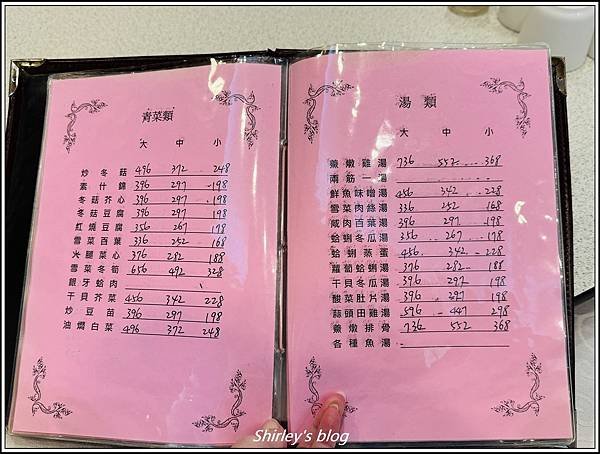 青菜類
大 中 小
炒冬菇 496 372 248
素什錦 396 297 198
冬菇芥心 396 297 198
冬菇豆腐 396 297 198
紅燒豆腐 356 267 178
雪菜百葉 336 252 168
火腿菜心 376 282 188
雪菜冬筍 656 492 328
銀牙蛤肉
干貝芥菜 456 342 228
炒豆苗 396 297 198
油燜白菜 496 372 248
湯類
大 中 小
藥燉雞湯 736 552 368
兩筋一湯
鮮魚味噌湯 456 342 228
雪菜肉絲湯 336 252 168
咸肉百葉湯 396 297 198
蛤蜊冬瓜湯 356 267 178
蛤蜊蒸蛋 456 342 228
蘿蔔蛤蜊湯 376 282 188
干貝冬瓜湯 396 297 198
酸菜肚片湯 396 297 198
蒜頭田雞湯 596 447 298
藥燉排骨 736 552 368
各種魚湯
Shirley's blog